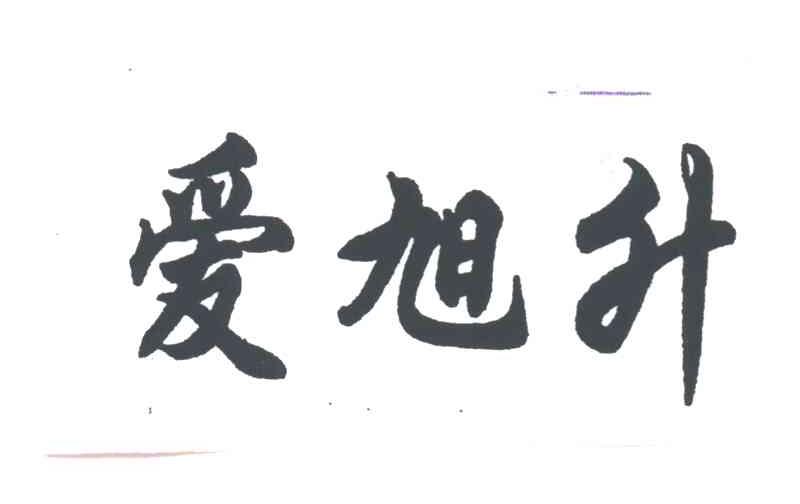 爱旭升